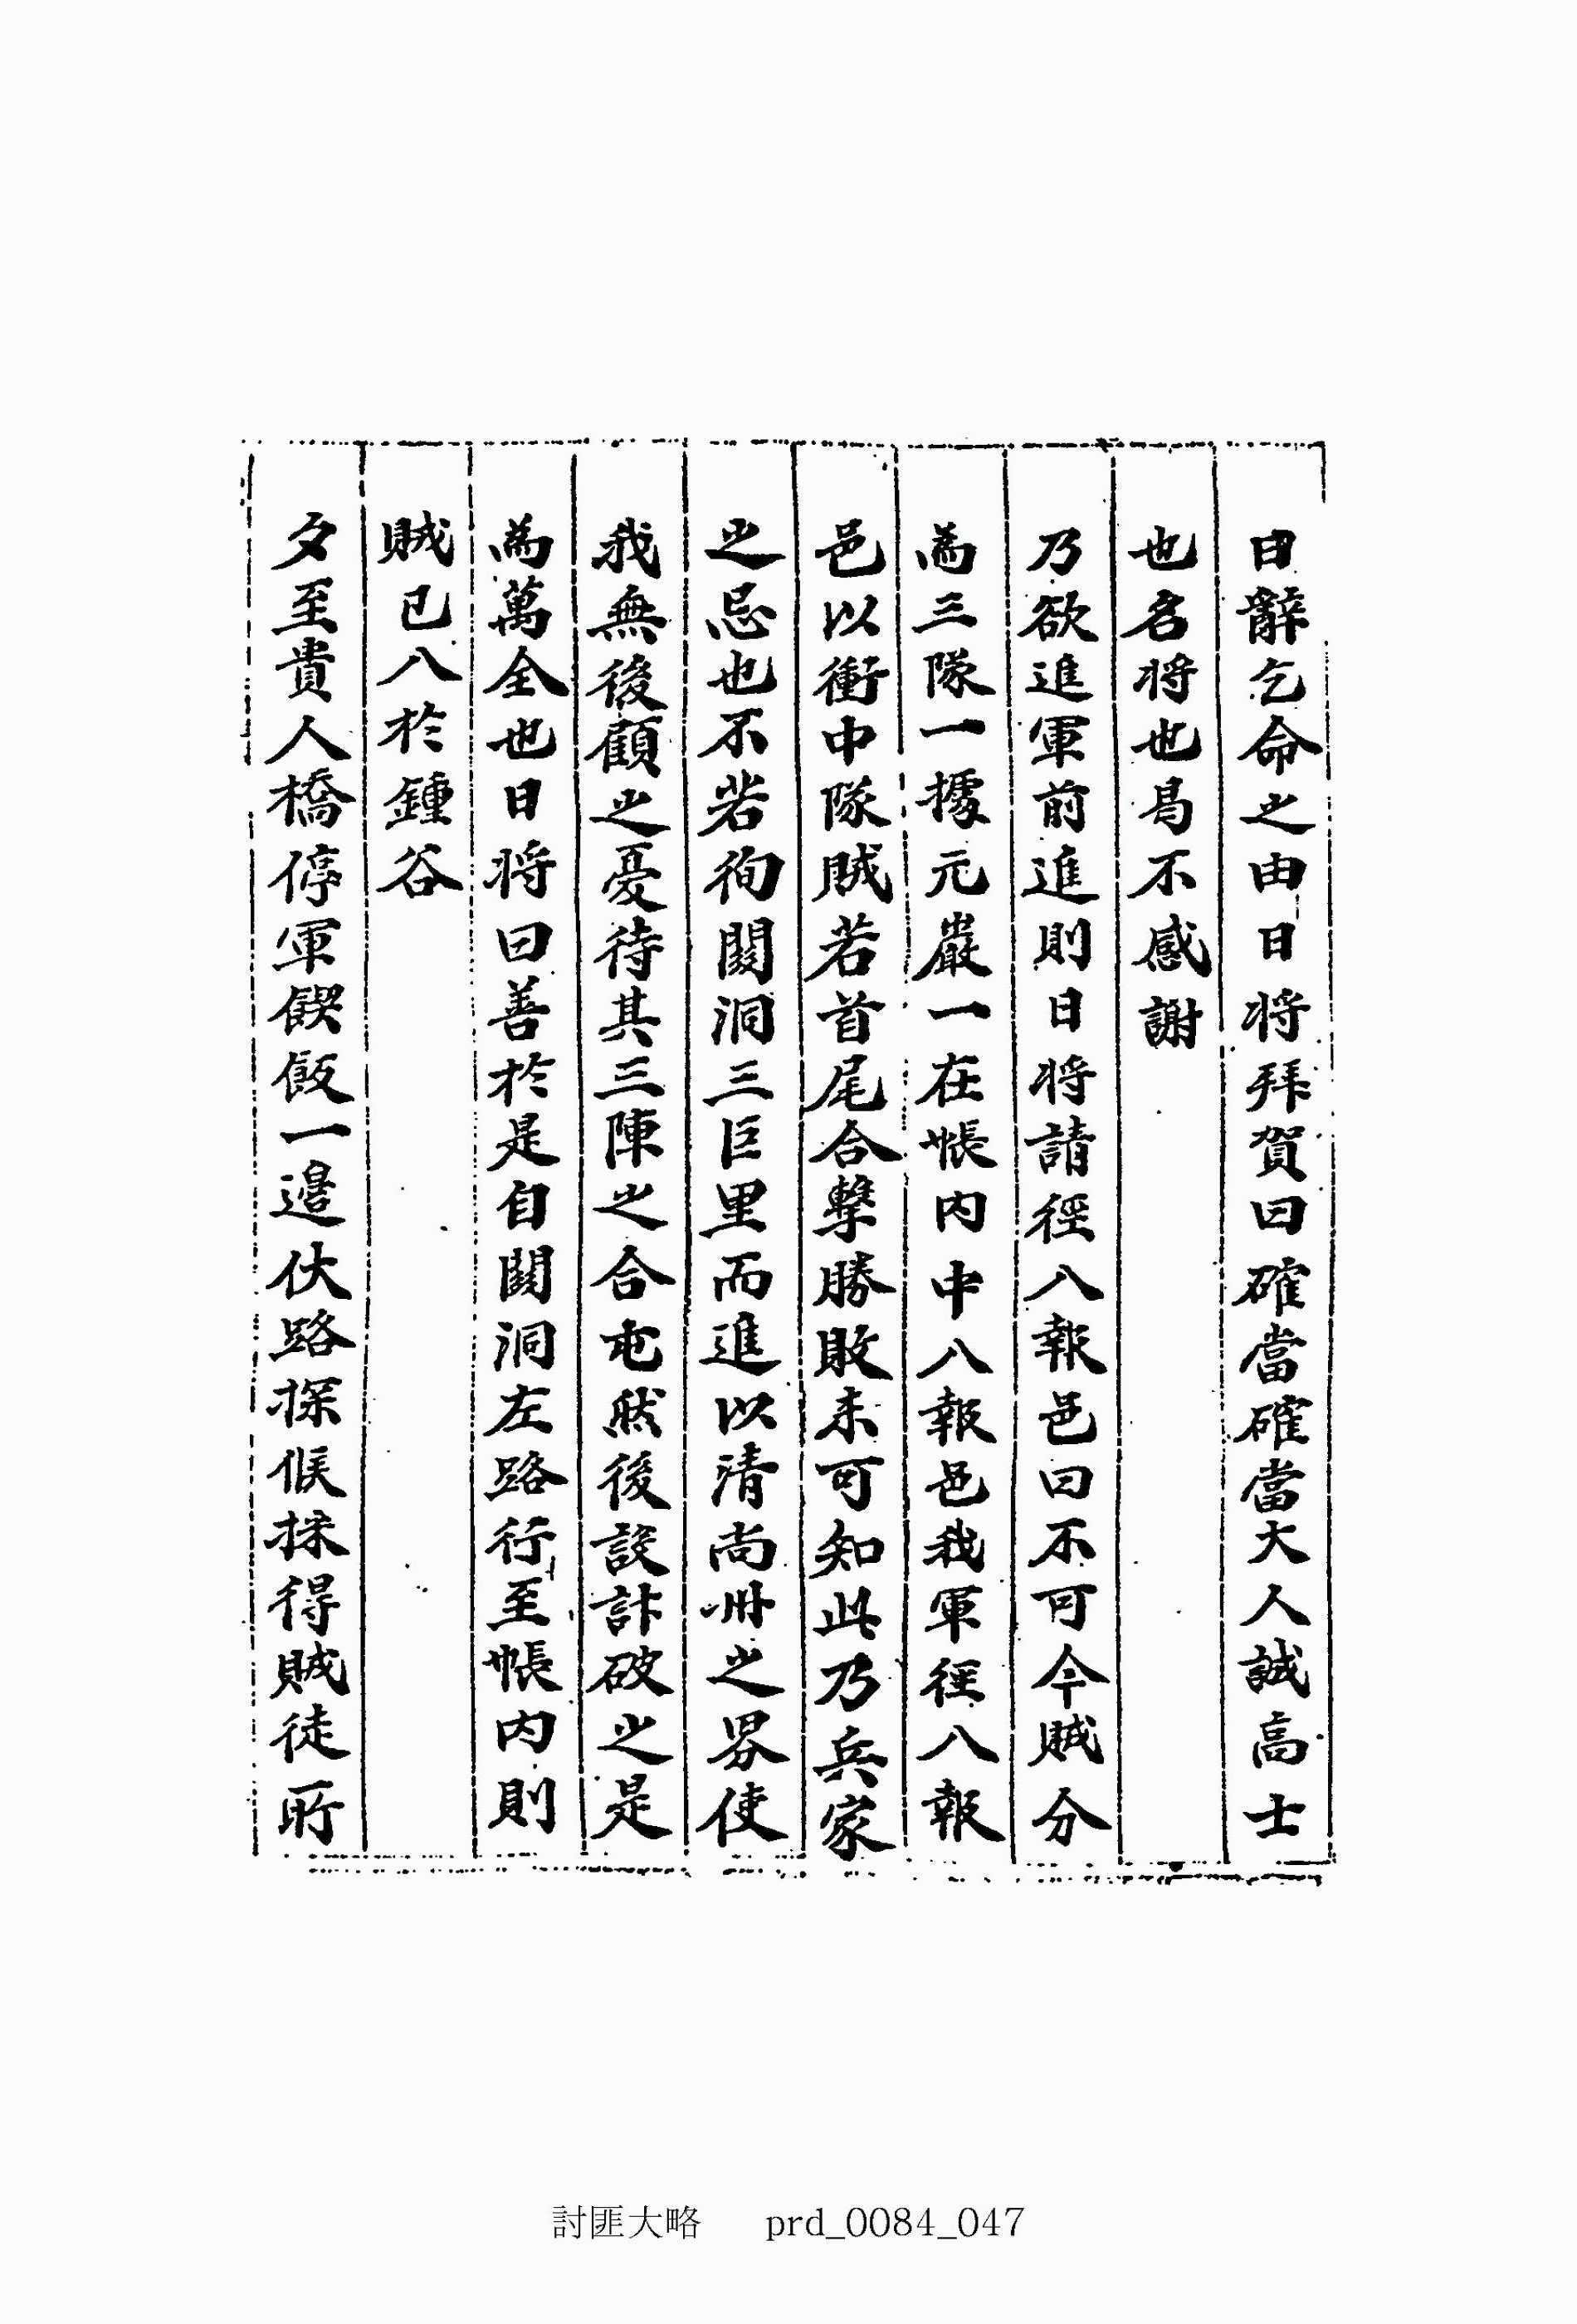 由辭乞命之由日将拜賀曰確當確當大人誠高士
也名将也曷不感謝
乃欲進軍前進則日将請徑入報邑曰不可今賊分
為三隊一據元巖一在帳內中入報邑我軍徑入報
邑以衝中隊賊若首尾合擊勝敗未可知此乃兵家
之忌也不若徇閼洞三巨里而進以清尚州之界使
我無後顧之憂待其三陳之合屯然後設計破之是
為萬全也日将曰善於是自閼洞左路行至帳內則
賊已入於鍾谷
夕至貴人橋停軍餽飯一邊伏路探候採得賊徒所
討匪大略 prd_0084_047